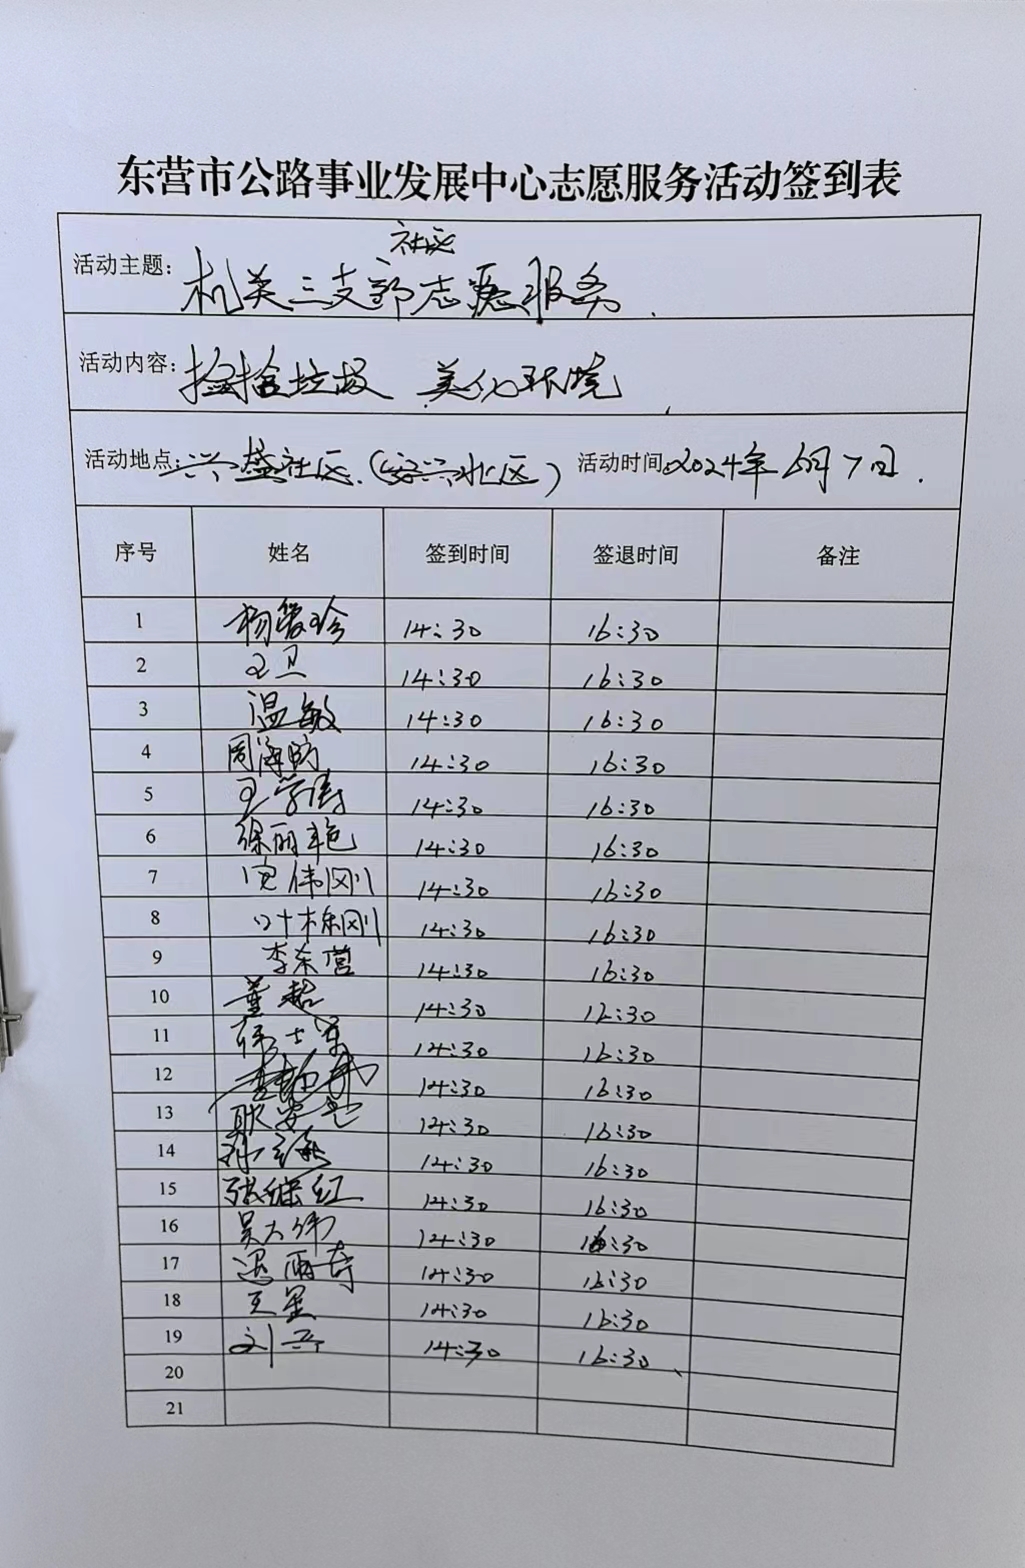 东营市公路事业发展中心志愿服务活动签到表
社区
活动主题: 机关三支部志愿服务
活动内容: 捡拾垃圾 美化环境
活动地点: 兴盛社区(安兴北区) 活动时间: 2024年6月7日.
序号 姓名 签到时间 签退时间 备注
1 杨 14:30 16:30
2 王卫 14:30 16:30
3 温敏 14:30 16:30
4 周海 14:30 16:30
5 王学涛 14:30 16:30
6 徐丽艳 14:30 16:30
7 伟刚 14:30 16:30
8 叶栋刚 14:30 16:30
9 李东营 14:30 16:30
10 董超 14:30 16:30
11 14:30 16:30
12 14:30 16:30
13 14:30 16:30
14 14:30 16:30
15 张继红 14:30 16:30
16 吴大伟 14:30 16:30
17 雨奇 14:30 16:30
18 王星 14:30 16:30
19 刘 14:30 16:30
20
21